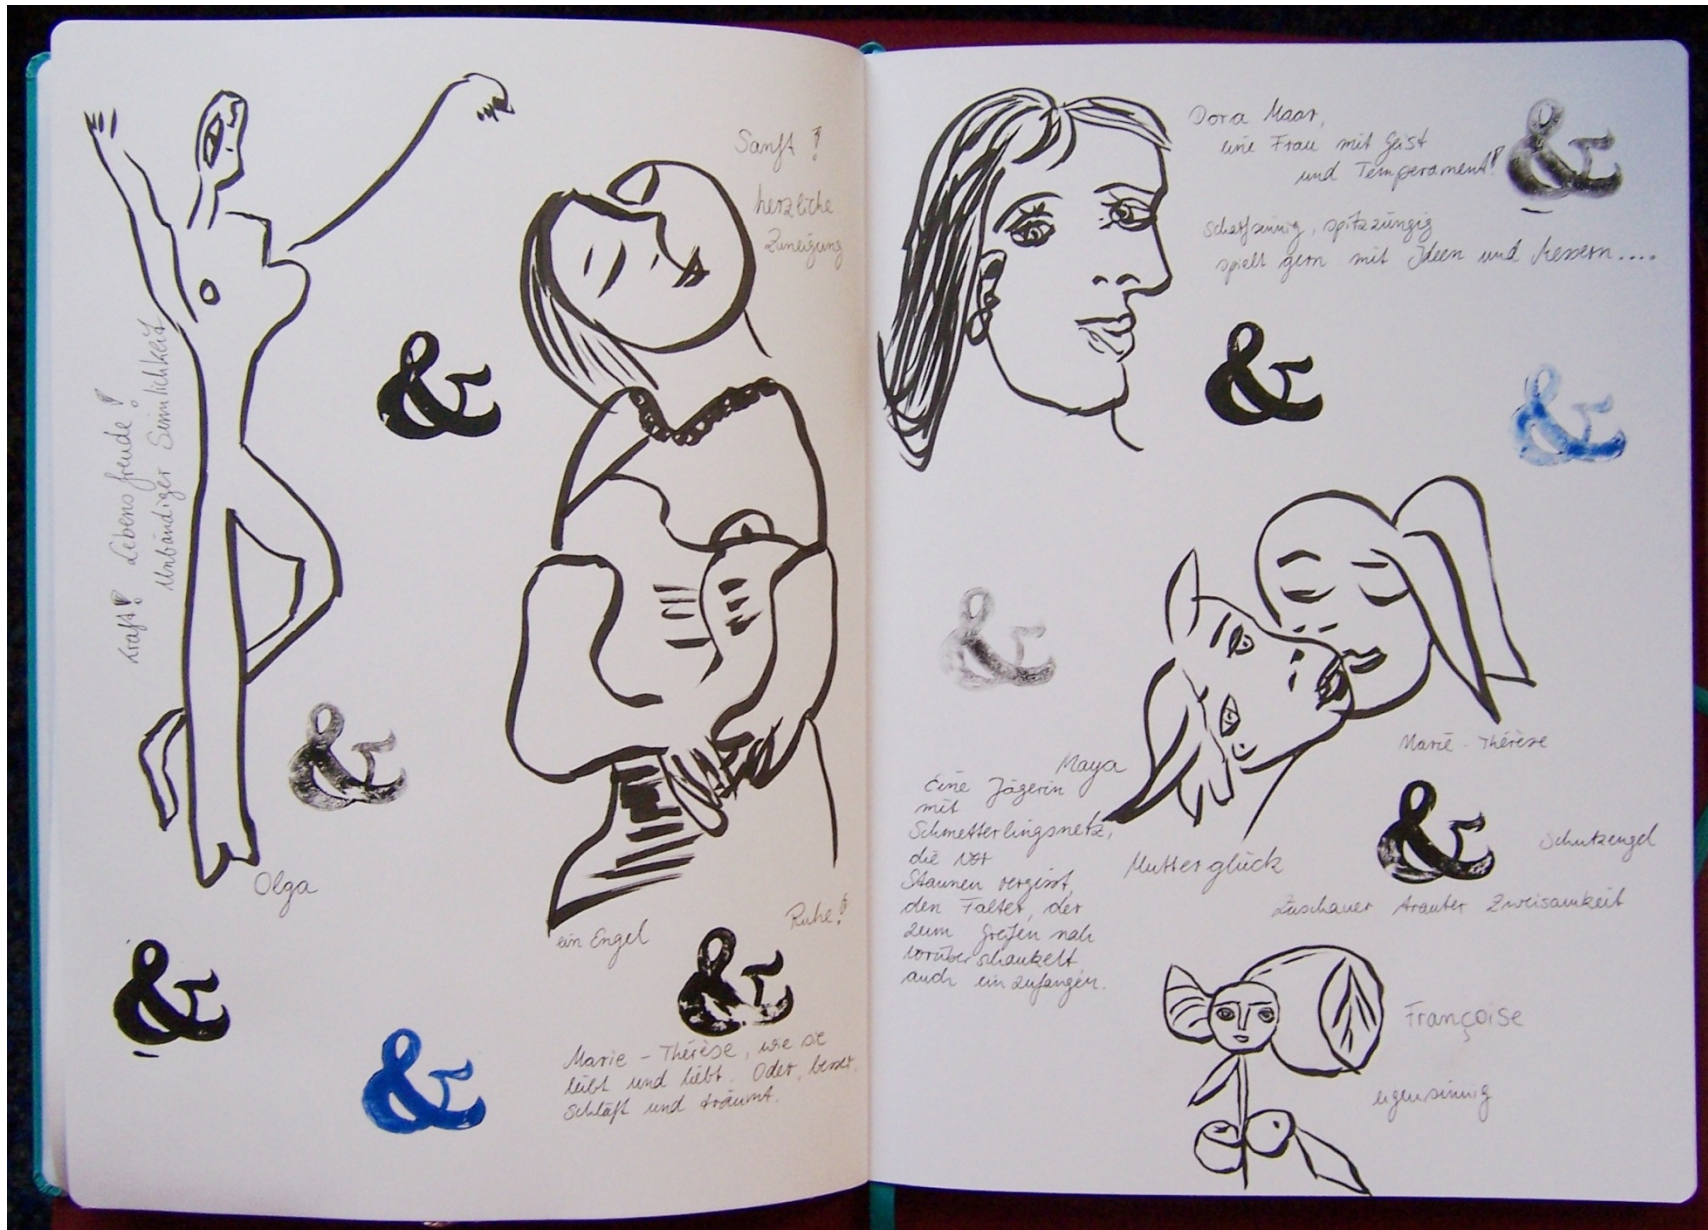 Kraft! Lebensfreude!
Unbändiger Sinnlichkeit
&
&
Olga
&
&
Sanft!
herzliche
Zuneigung
ein Engel
Ruhe!
&
Marie-Thérèse, wie sie
leibt und liebt. Oder, besser,
schläft und träumt.
Dora Maar,
eine Frau mit Geist
und Temperament!
&
scharfsinnig, spitzzüngig
spielt gern mit Ideen und Messern....
&
&
&
Marie-Thérèse
Maya
Eine Jägerin
mit
Schmetterlingsnetz,
die vor
Staunen vergisst,
den Falter, der
zum Greifen nah
vorüberschaukelt
auch einzufangen.
Mutterglück
&
Schutzengel
Zuschauer trauter Zweisamkeit
Françoise
eigensinnig